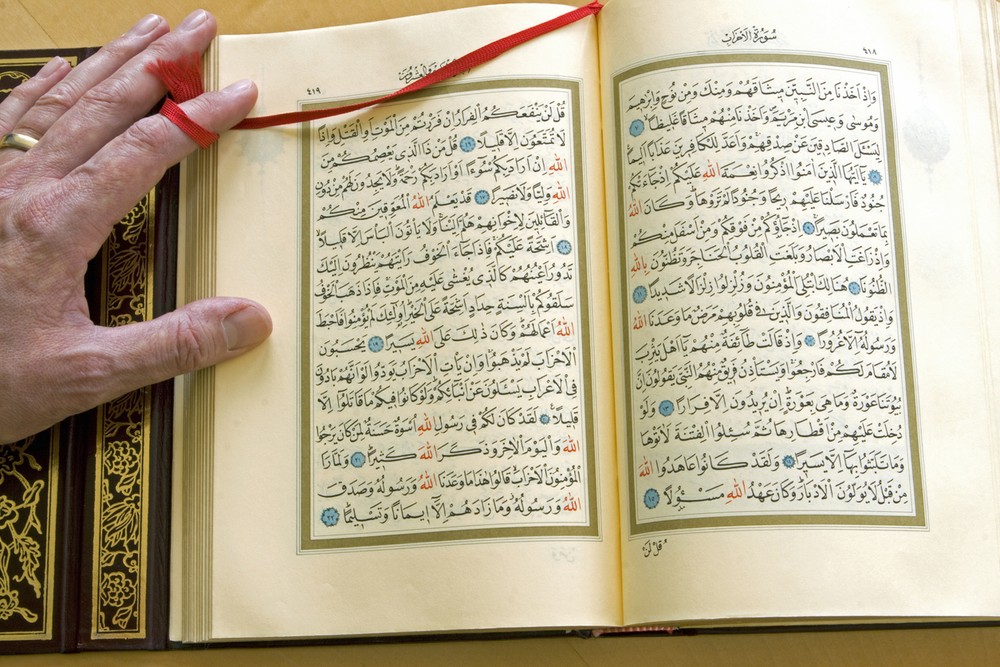 سُورَةُ الْأَحْزَابِ
٤١٨
وَاِذْ اَخَذْنَا مِنَ النَّبِيّنَ مِيثَاقَهُمْ وَمِنْكَ وَمِنْ نُوحٍ وَاِبْرٰهِيمَ
وَمُوسٰى وَعِيسَى ابْنِ مَرْيَمَ وَاَخَذْنَا مِنْهُمْ مِيثَاقًا غَلِيظًا ٧
لِيَسْئَلَ الصَّادِقِينَ عَنْ صِدْقِهِمْ وَاَعَدَّ لِلْكَافِرِينَ عَذَابًا اَلِيمًا
٨ يَا اَيُّهَا الَّذِينَ اٰمَنُوا اذْكُرُوا نِعْمَةَ اللّٰهِ عَلَيْكُمْ اِذْ جَاءَتْكُمْ
جُنُودٌ فَاَرْسَلْنَا عَلَيْهِمْ رِيحًا وَجُنُودًا لَمْ تَرَوْهَا وَكَانَ اللّٰهُ
بِمَا تَعْمَلُونَ بَصِيرًا ٩ اِذْ جَاؤُكُمْ مِنْ فَوْقِكُمْ وَمِنْ اَسْفَلَ مِنْكُمْ
وَاِذْ زَاغَتِ الْاَبْصَارُ وَبَلَغَتِ الْقُلُوبُ الْحَنَاجِرَ وَتَظُنُّونَ بِاللّٰهِ
الظُّنُونَا ١٠ هُنَالِكَ ابْتُلِيَ الْمُؤْمِنُونَ وَزُلْزِلُوا زِلْزَالًا شَدِيدًا ١١
وَاِذْ يَقُولُ الْمُنَافِقُونَ وَالَّذِينَ فِي قُلُوبِهِمْ مَرَضٌ مَا وَعَدَنَا اللّٰهُ
وَرَسُولُهُ اِلَّا غُرُورًا ١٢ وَاِذْ قَالَتْ طَائِفَةٌ مِنْهُمْ يَا اَهْلَ يَثْرِبَ
لَا مُقَامَ لَكُمْ فَارْجِعُوا وَيَسْتَأْذِنُ فَرِيقٌ مِنْهُمُ النَّبِيَّ يَقُولُونَ اِنَّ
بُيُوتَنَا عَوْرَةٌ وَمَا هِيَ بِعَوْرَةٍ اِنْ يُرِيدُونَ اِلَّا فِرَارًا ١٣ وَلَوْ
دُخِلَتْ عَلَيْهِمْ مِنْ اَقْطَارِهَا ثُمَّ سُئِلُوا الْفِتْنَةَ لَاٰتَوْهَا
وَمَا تَلَبَّثُوا بِهَا اِلَّا يَسِيرًا ١٤ وَلَقَدْ كَانُوا عَاهَدُوا اللّٰهَ
مِنْ قَبْلُ لَا يُوَلُّونَ الْاَدْبَارَ وَكَانَ عَهْدُ اللّٰهِ مَسْؤُلًا ١٥
قُلْ لَنْ
٤١٩
قُلْ لَنْ يَنْفَعَكُمُ الْفِرَارُ اِنْ فَرَرْتُمْ مِنَ الْمَوْتِ اَوِ الْقَتْلِ وَاِذًا
لَا تُمَتَّعُونَ اِلَّا قَلِيلًا ١٦ قُلْ مَنْ ذَا الَّذِي يَعْصِمُكُمْ مِنَ
اللّٰهِ اِنْ اَرَادَ بِكُمْ سُوءًا اَوْ اَرَادَ بِكُمْ رَحْمَةً وَلَا يَجِدُونَ لَهُمْ مِنْ دُونِ
اللّٰهِ وَلِيًّا وَلَا نَصِيرًا ١٧ قَدْ يَعْلَمُ اللّٰهُ الْمُعَوِّقِينَ مِنْكُمْ
وَالْقَائِلِينَ لِاِخْوَانِهِمْ هَلُمَّ اِلَيْنَا وَلَا يَأْتُونَ الْبَأْسَ اِلَّا قَلِيلًا
١٨ اَشِحَّةً عَلَيْكُمْ فَاِذَا جَاءَ الْخَوْفُ رَاَيْتَهُمْ يَنْظُرُونَ اِلَيْكَ
تَدُورُ اَعْيُنُهُمْ كَالَّذِي يُغْشٰى عَلَيْهِ مِنَ الْمَوْتِ فَاِذَا ذَهَبَ الْخَوْفُ
سَلَقُوكُمْ بِاَلْسِنَةٍ حِدَادٍ اَشِحَّةً عَلَى الْخَيْرِ اُولٰئِكَ لَمْ يُؤْمِنُوا فَاَحْبَطَ
اللّٰهُ اَعْمَالَهُمْ وَكَانَ ذٰلِكَ عَلَى اللّٰهِ يَسِيرًا ١٩ يَحْسَبُونَ
الْاَحْزَابَ لَمْ يَذْهَبُوا وَاِنْ يَأْتِ الْاَحْزَابُ يَوَدُّوا لَوْ اَنَّهُمْ بَادُونَ
فِي الْاَعْرَابِ يَسْئَلُونَ عَنْ اَنْبَائِكُمْ وَلَوْ كَانُوا فِيكُمْ مَا قَاتَلُوا اِلَّا
قَلِيلًا ٢٠ لَقَدْ كَانَ لَكُمْ فِي رَسُولِ اللّٰهِ اُسْوَةٌ حَسَنَةٌ لِمَنْ كَانَ يَرْجُوا
اللّٰهَ وَالْيَوْمَ الْاٰخِرَ وَذَكَرَ اللّٰهَ كَثِيرًا ٢١ وَلَمَّا رَاَ
الْمُؤْمِنُونَ الْاَحْزَابَ قَالُوا هٰذَا مَا وَعَدَنَا اللّٰهُ وَرَسُولُهُ وَصَدَقَ
اللّٰهُ وَرَسُولُهُ وَمَا زَادَهُمْ اِلَّا اِيمَانًا وَتَسْلِيمًا ٢٢